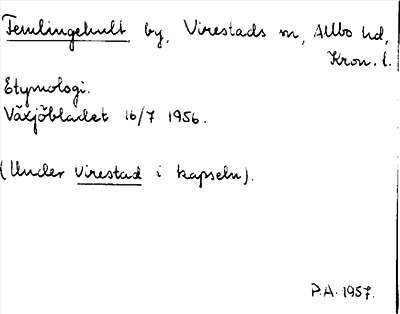 Femlingehult by, Virestads sn, Allbo hd,
Kron. l.
Etymologi.
Växjöbladet 16/7 1956.
(Under Virestad i kapseln).
P.A. 1957.